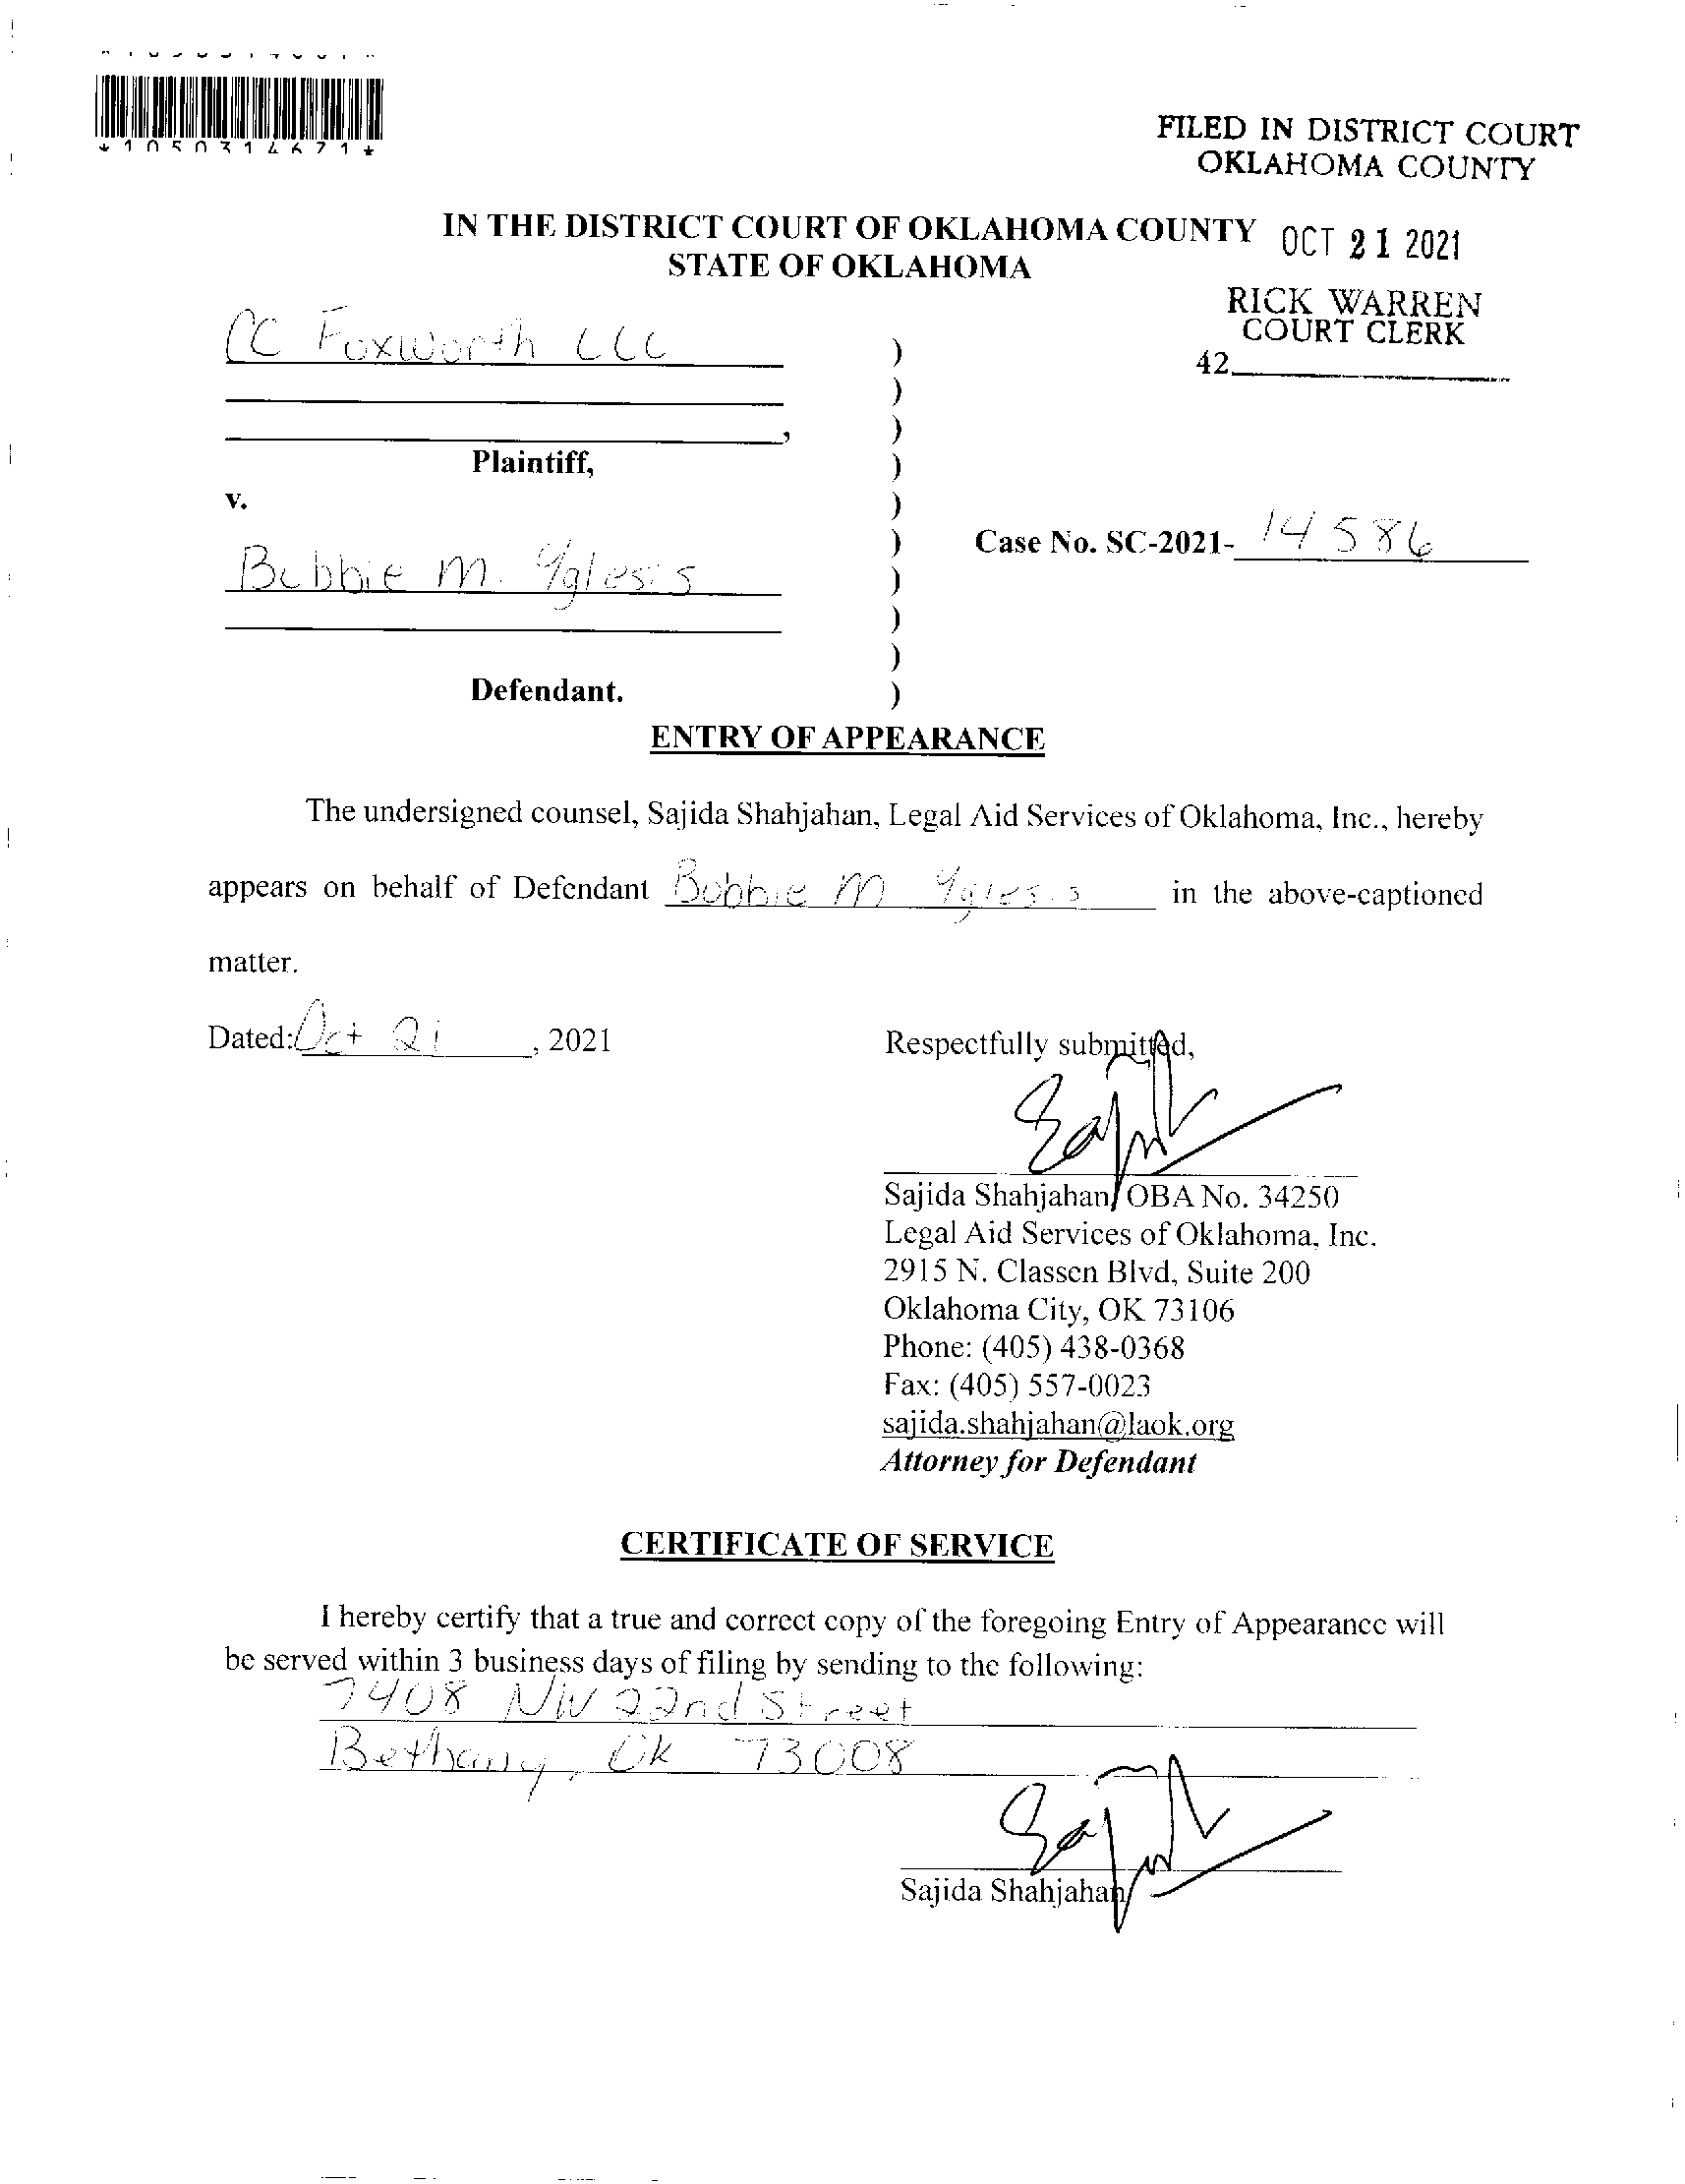 *1050314671*
FILED IN DISTRICT COURT
OKLAHOMA COUNTY
IN THE DISTRICT COURT OF OKLAHOMA COUNTY
STATE OF OKLAHOMA
OCT 21 2021
RICK WARREN
COURT CLERK
42
CC Foxworth LLC )
)
, )
Plaintiff, )
v. )
) Case No. SC-2021- 14586
Bobbie M. Yglesis )
)
)
Defendant. )
ENTRY OF APPEARANCE
The undersigned counsel, Sajida Shahjahan, Legal Aid Services of Oklahoma, Inc., hereby
appears on behalf of Defendant Bobbie M Yglesis in the above-captioned
matter.
Dated: Oct 21, 2021
Respectfully submitted,
Sajida Shahjahan, OBA No. 34250
Legal Aid Services of Oklahoma, Inc.
2915 N. Classen Blvd, Suite 200
Oklahoma City, OK 73106
Phone: (405) 438-0368
Fax: (405) 557-0023
sajida.shahjahan@laok.org
Attorney for Defendant
CERTIFICATE OF SERVICE
I hereby certify that a true and correct copy of the foregoing Entry of Appearance will
be served within 3 business days of filing by sending to the following:
7408 NW 22nd Street
Bethany, Ok 73008
Sajida Shahjahan